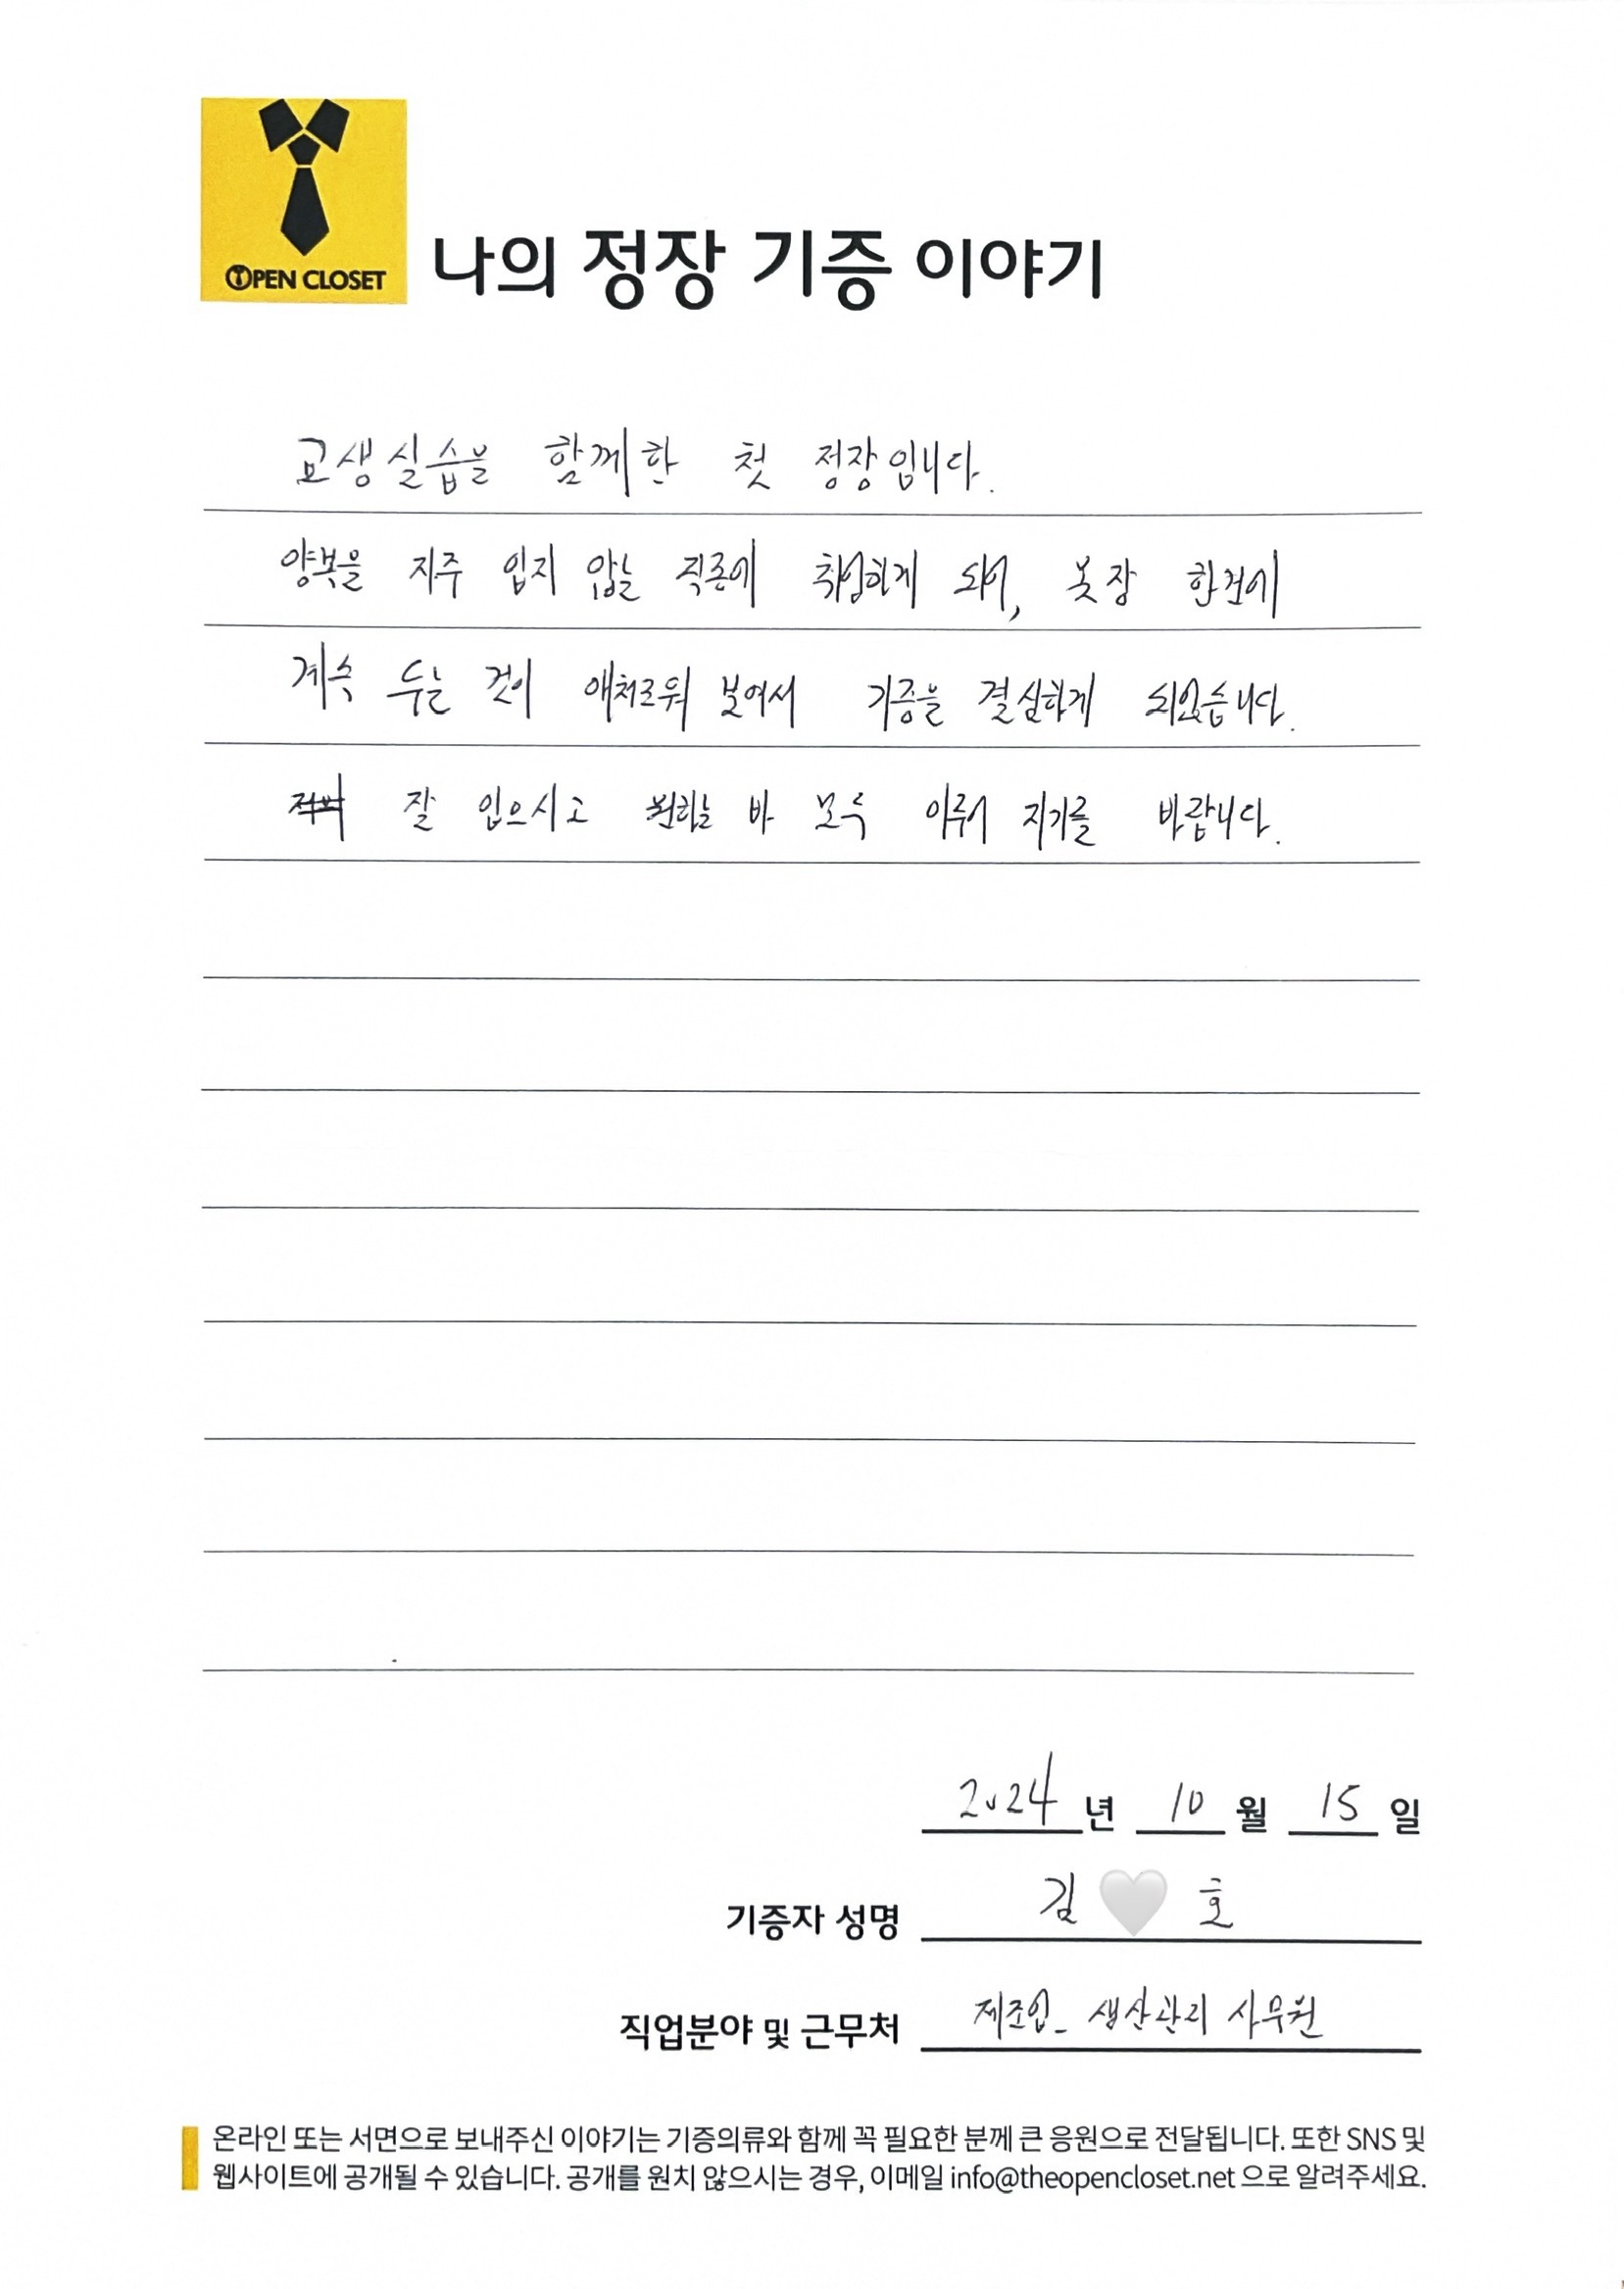 OPEN CLOSET
나의 정장 기증 이야기
교생실습을 함께한 첫 정장입니다.
양복을 자주 입지 않는 직종에 취업하게 되어, 옷장 한켠에
계속 두는 것이 애처로워 보여서 기증을 결심하게 되었습니다.
잘 입으시고 원하는 바 모두 이루어 지기를 바랍니다.
2024년 10월 15일
기증자 성명 김 🤍 호
직업분야 및 근무처 제조업_ 생산관리 사무원
온라인 또는 서면으로 보내주신 이야기는 기증의류와 함께 꼭 필요한 분께 큰 응원으로 전달됩니다. 또한 SNS 및
웹사이트에 공개될 수 있습니다. 공개를 원치 않으시는 경우, 이메일 info@theopencloset.net 으로 알려주세요.